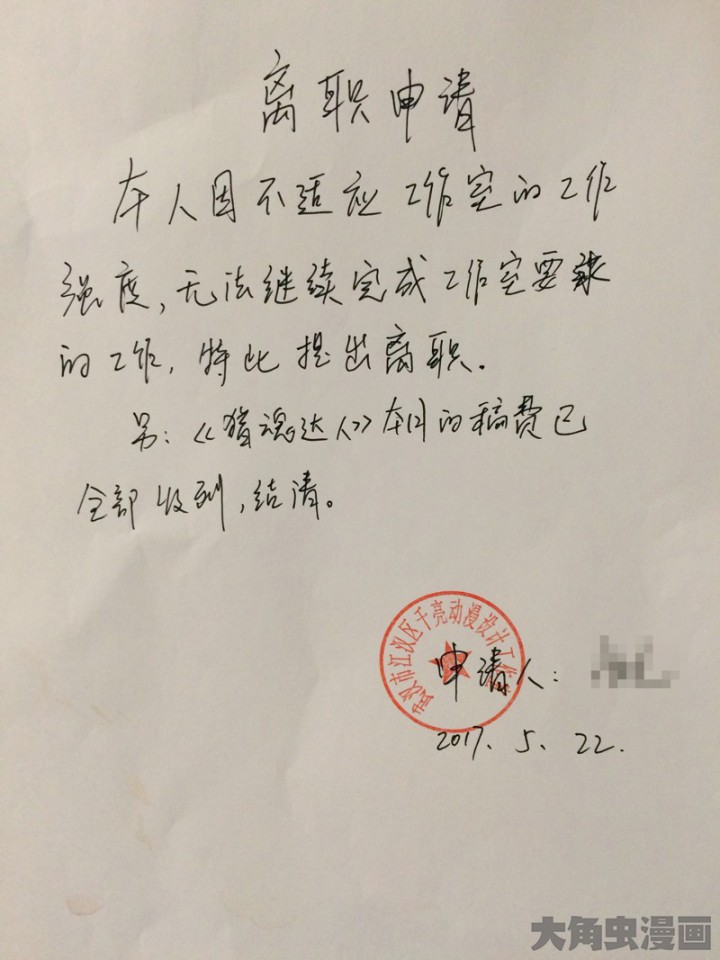 离职申请
本人因不适应工作室的工作
强度,无法继续完成工作室要求
的工作,特此提出离职。
另:《猎魂达人》本月的稿费已
全部收到,结清。
武汉市江汉区千亮动漫设计工作
申请人:
2017. 5. 22.
大角虫漫画